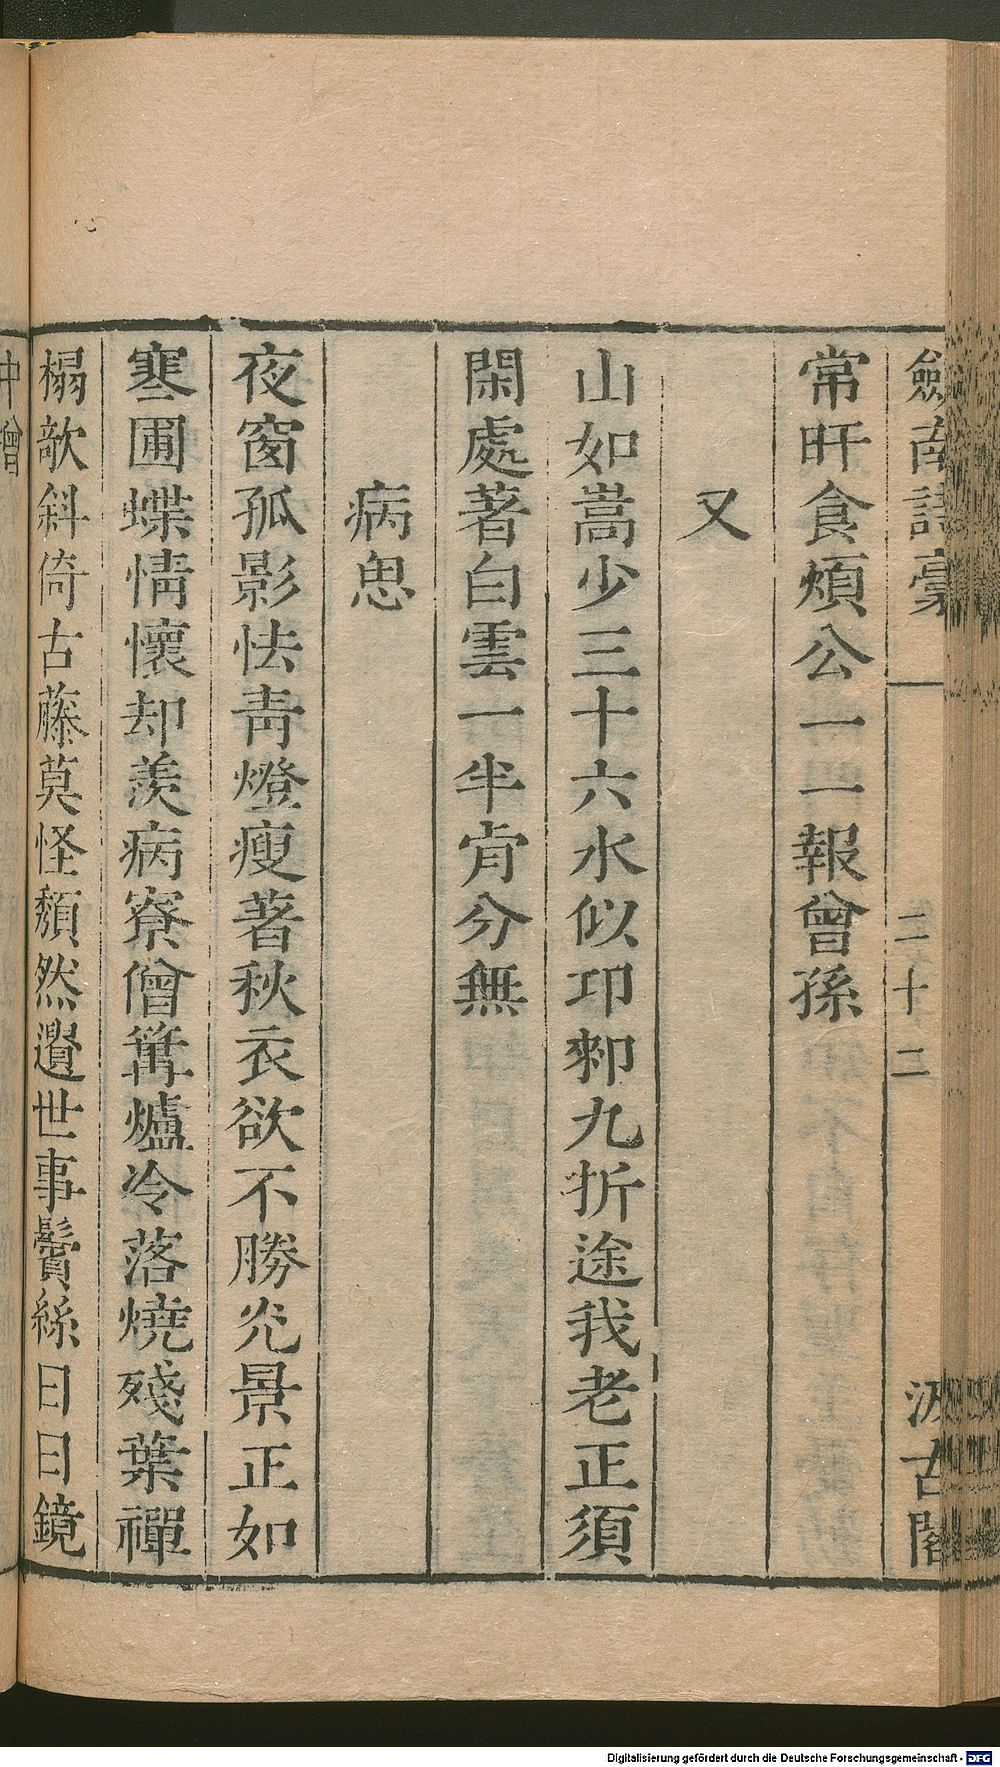 劍南詩稾 二十二 汲古閣
常旰食煩公一一報曾孫
又
山如嵩少三十六水似卭郲九折途我老正須
閑處著白雲一半肯分無
病思
夜窗孤影怯靑燈瘦著秋衣欲不勝光景正如
寒圃蝶情懷却羨病寮僧篝爐冷落燒殘葉禪
榻欹斜倚古藤莫怪頽然遺世事鬢絲日日鏡
中增
Digitalisierung gefördert durch die Deutsche Forschungsgemeinschaft - DFG